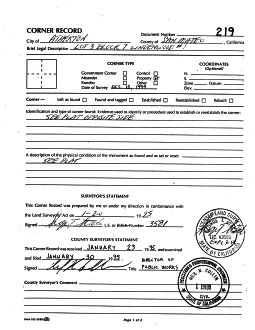 CORNER RECORD
Document Number 219
City of ATHERTON County of SAN MATEO, California
Brief Legal Description LOT 3 BLOCK 7 LINDENWOOD #1
CORNER TYPE
COORDINATES
(Optional)
Government Corner Control N.
Meander Property E.
Rancho Other Zone Datum
Date of Survey Elev.
Corner — Left as found Found and tagged Established Reestablished Rebuilt
Identification and type of corner found: Evidence used to identify or procedure used to establish or reestablish the corner:
SEE PLAT OPPOSITE SIDE
A description of the physical condition of the monument as found and as set or reset:
SEE PLAT
SURVEYOR'S STATEMENT
This Corner Record was prepared by me or under my direction in conformance with
the Land Surveyors' Act on 1-20 1995
Signed L.S. or R.C.E. Number 3581
COUNTY SURVEYOR'S STATEMENT
This Corner Record was received JANUARY 23 1995 and examined
and filed JANUARY 30 1995
Signed Title DIRECTOR OF PUBLIC WORKS
County Surveyor's Comment
Page 1 of 2